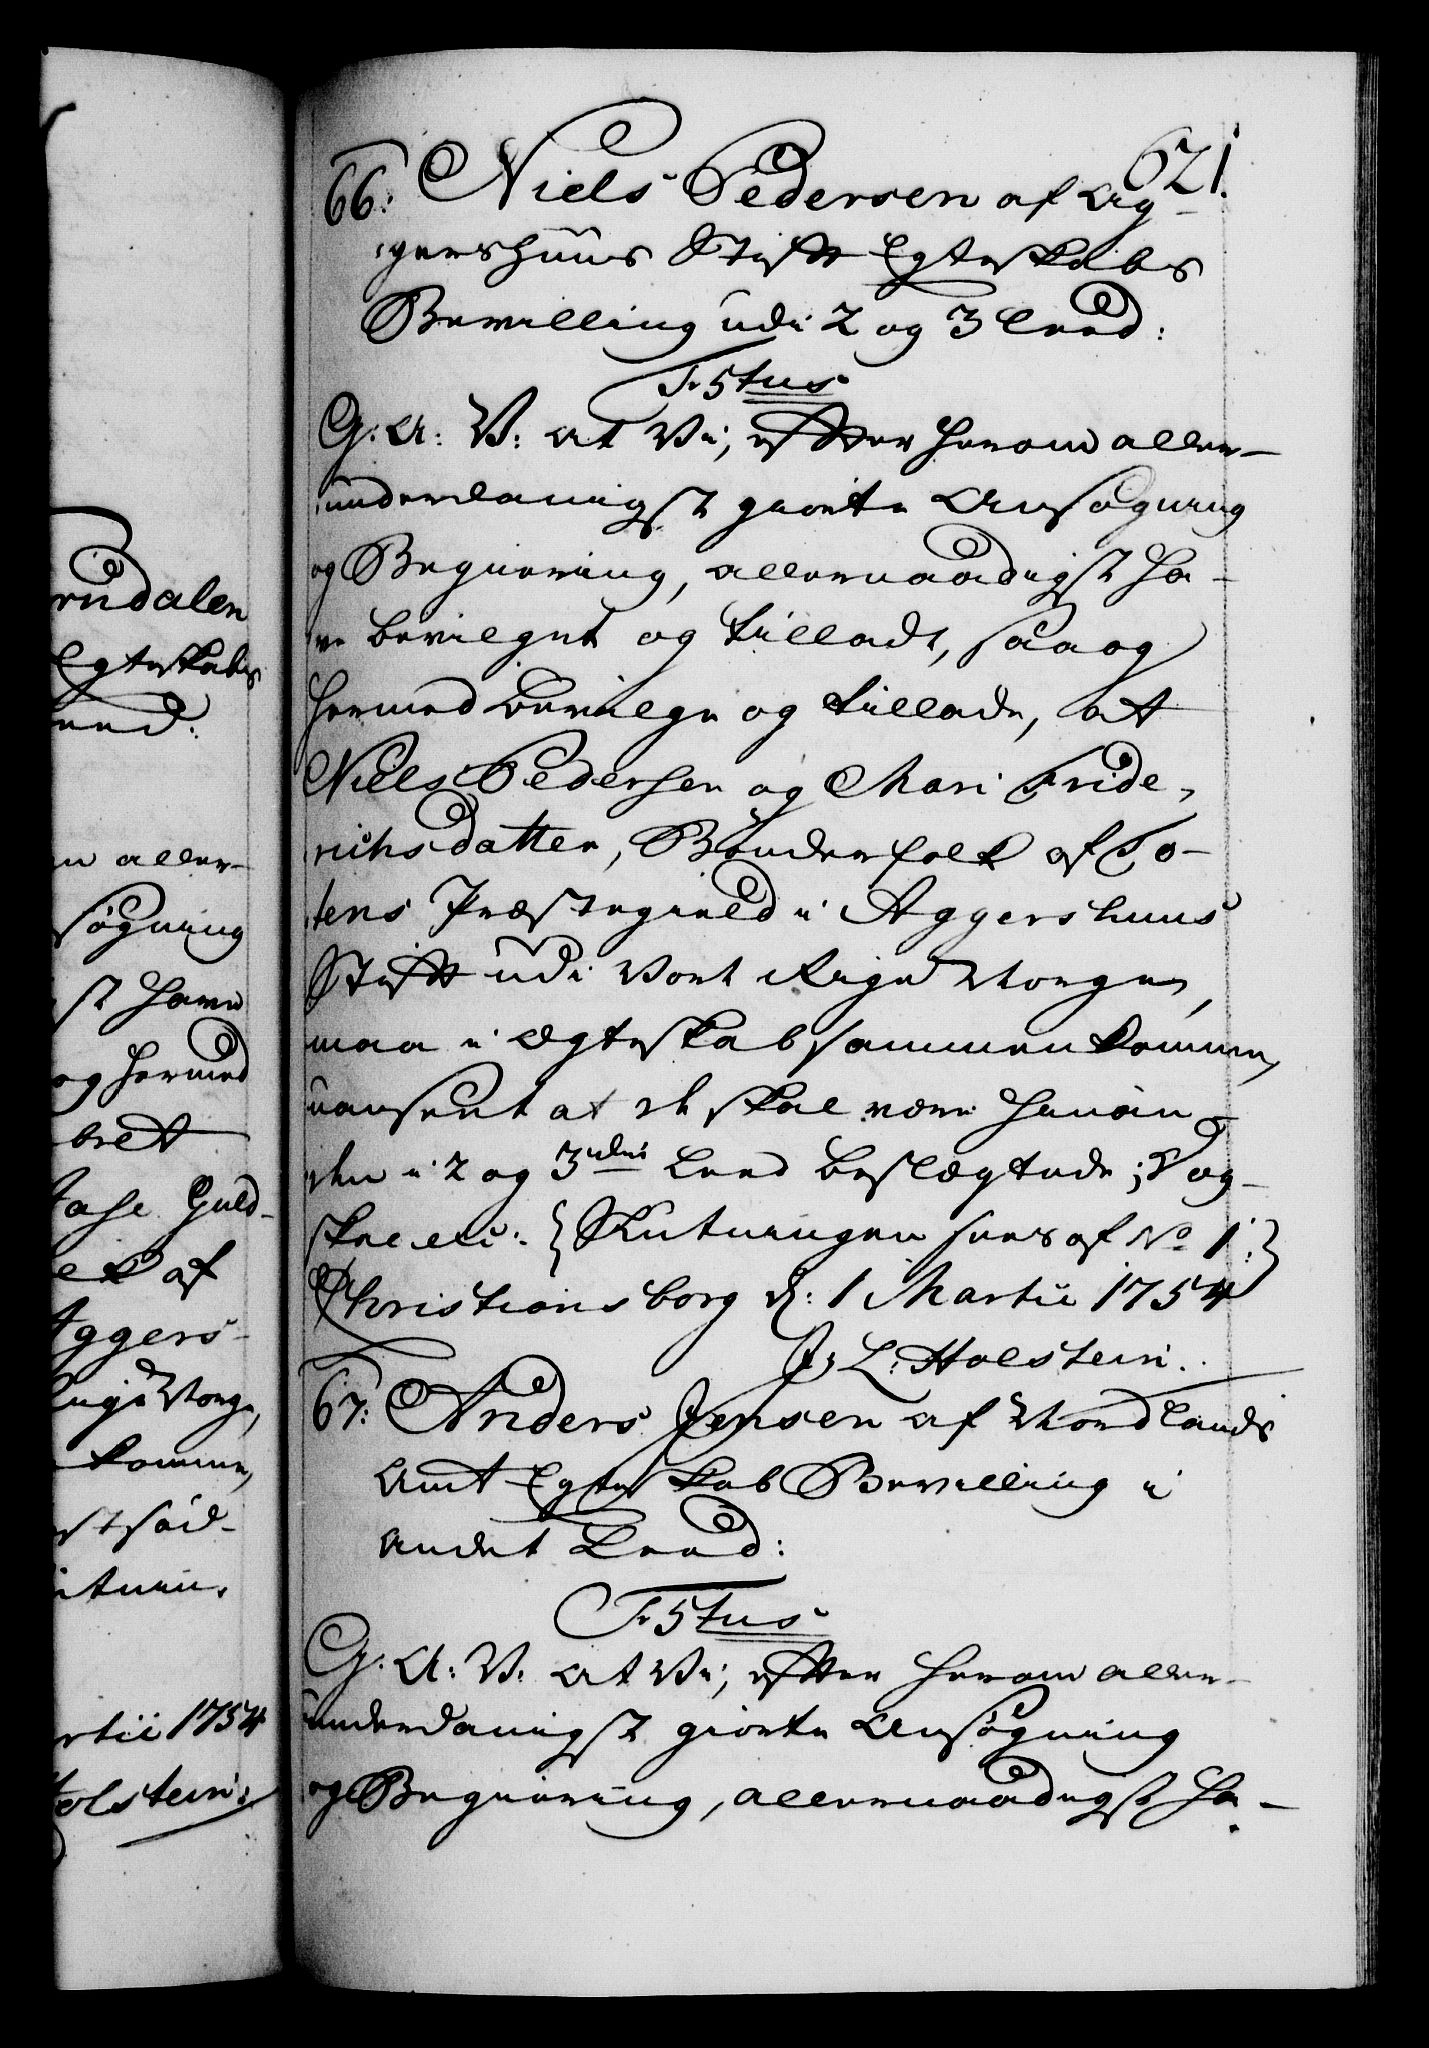 621.
66. Niels Pedersen af Ag-
gershuus Stift Egteskabs
Bevilling udi 2 og 3 Leed:
Fr 5tus
G: A: V: at Vi, efter herom aller-
underdanigst giorte Ansøgning
og Begiering, allernaadigst ha-
ve bevilget og tilladt, saa og
hermed bevilge og tillade, at
Niels Pedersen og Mari Fride-
richsdatter, Bønderfolk af To-
tens Præstegield i Aggershuus
Stift udi Vort Rige Norge,
maa i Ægteskab sammenkomme,
uanseet at de skal være hinan-
den i 2 og 3die Leed beslægtede; Dog
skal etc: {Slutningen sees af No 1:}
Christiansborg d: 1 Martii 1754
J: L: Holstein.
67: Anders Jensen af Nordlands
Amt Egteskab Bevilling i
andet Leed:
Fr 5tus
G: A: V: at Vi, efter herom aller-
underdanigst giorte Ansøgning
og Begiering, allernaadigst ha-
rndalen
Egteskabs
eed:
m aller-
søgning
st have
og hermed
bret
Guld-
af
Aggers-
Rige Norge,
komme,
1754
Holstein: